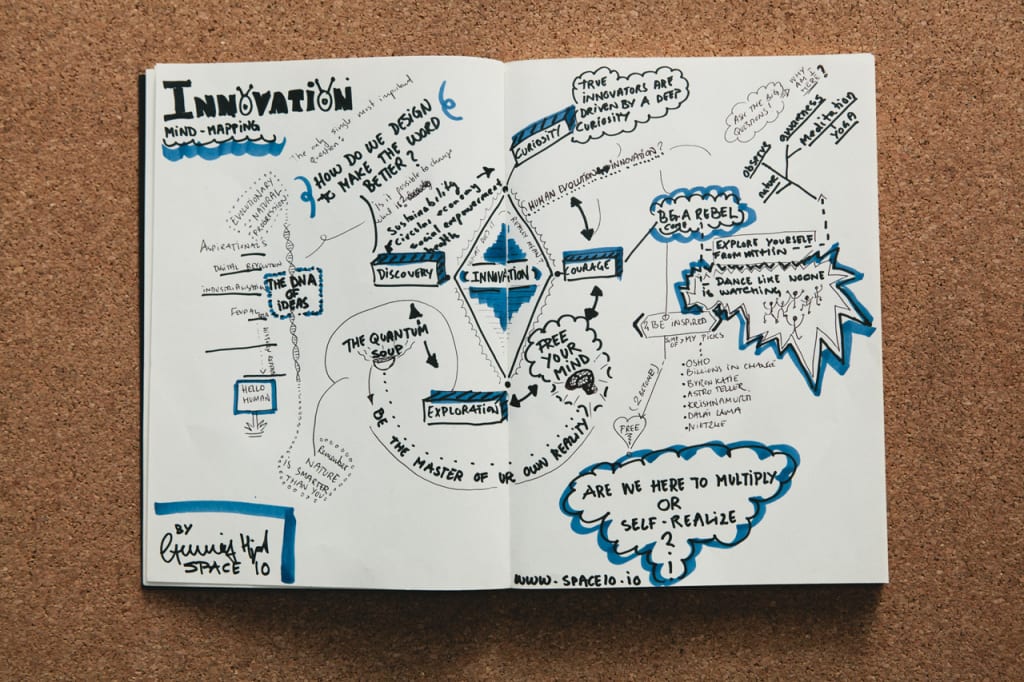 INNOVATION
MIND-MAPPING
The only single most important
question's
HOW DO WE DESIGN
&
MAKE THE WORD
BETTER?
Is it possible to change
what is
Sustainability
circular economy
social empowerment
health
EVOLUTIONARY
NATURAL
PROGRESSION
ASPIRATIONAL'S
DIGITAL REVOLUTION
INDUSTRIALISM
FEUDAL
THE DNA
OF
IDEAS
HELLO
HUMAN
Remember
NATURE
IS SMARTER
THAN YOU
BY
SPACE 10
DISCOVERY
THE QUANTUM
SOUP
EXPLORATION
BE THE MASTER OF UR OWN REALITY
INNOVATION
WHAT DO
REALLY MEAN
CURIOSITY
TRUE
INNOVATORS ARE
DRIVEN BY A DEEP
CURIOSITY
HUMAN EVOLUTION INNOVATION?
COURAGE
FREE
YOUR
MIND
BE A REBEL
ASK THE BIG
QUESTIONS!
WHY
AM I
HERE?
observe
awareness
Meditation
YOGA
EXPLORE YOURSELF
FROM WITHIN
- DANCE LIKE NOONE
IS WATCHING
BE INSPIRED
SOME OF MY PICKS
• OSHO
• BILLIONS IN CHANGE
• BYRON KATIE
• ASTRO TELLER
• KRISHNAMURTI
• DALAI LAMA
• NIETZHE
FREE
?
ARE WE HERE TO MULTIPLY
OR
SELF-REALIZE
?
WWW.SPACE10.IO